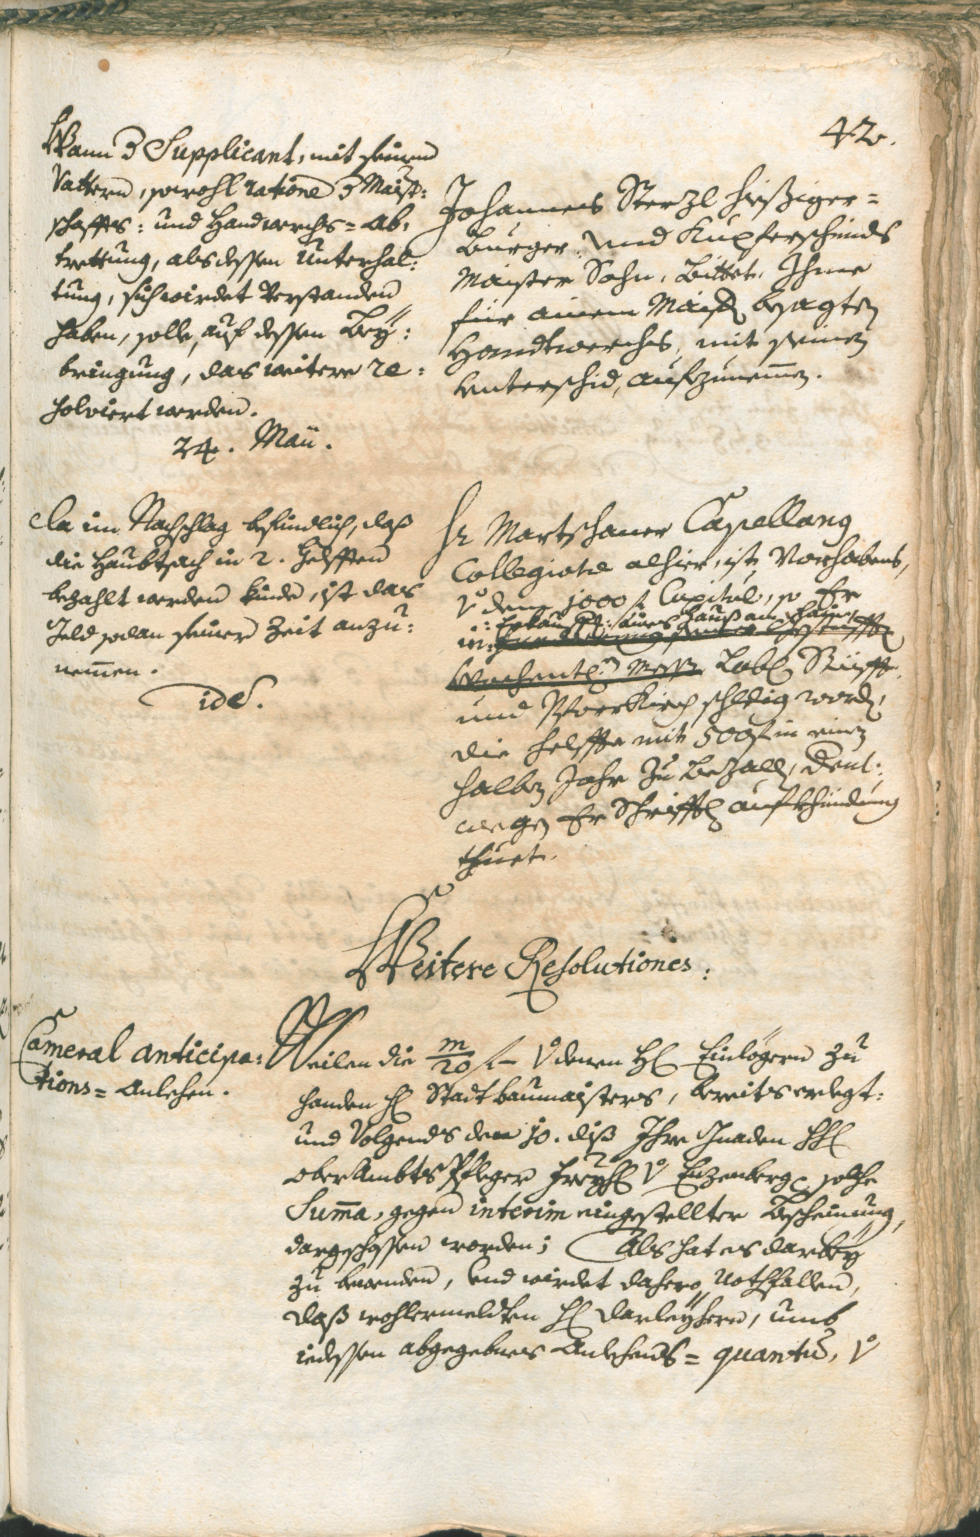 42.
Wann d Supplicant, mit seinem
Vattern, sowohl ratione d Maist:
schaffts: und Handwerchs= Ab,
trettung, als dessen Unterhal:
tung, sich wirdet verstanden
haben, solle, auf dessen Bey:
bringung, das weitere re:
solviert werden.
24. Maii.
Johannes Sterzl hießiger=
Burger: und Kupferschmids
Maister Sohn, Bittet, Ihme
für einem Maistr besagten
Handtwerchs, mit seinen
Unterschid, aufzunemen.
Da im Nachschlag befindlich, daß
die Haubtsach in 2. Helfften
bezahlt werden künde, ist das
Geld sodan seiner Zeit anzu:
nemen.
idE.
Hr Martschaner Capellang
Collegiatae alhier, ist Vorhabens,
V dem 1000 f Capital, so Er
in: Erkauffung: aines Hauß am
Wochentl: Mess Lobl: Stüfft
und Pfarrkirch schuldig worden,
die helffte mit 500 f in einem
halben Jahr zu bezallen, dent:
wegen Er Schrifftl aufkhündung
thuet.
Weitere Resolutiones:
Cameral anticipa:
tions= Anlehen.
Weilen die m/20 f V denen H Einlögern zu
handen H Stadtbaumaisters, bereits erlegt:
und Volgends den 10. diß Ihro Gnaden HH
OberAmbts Pfleger Freyh V Enzenberg, solche
Summa, gegen interim eingestellter Bescheinung,
dargeschossen worden; Als hat es darbey
zu bewenden, und wirdet dahero, nothfallen,
daß wohlermeldten H Darleyhern, umb
iedessen abgegebnes Anlehens= quantu, V